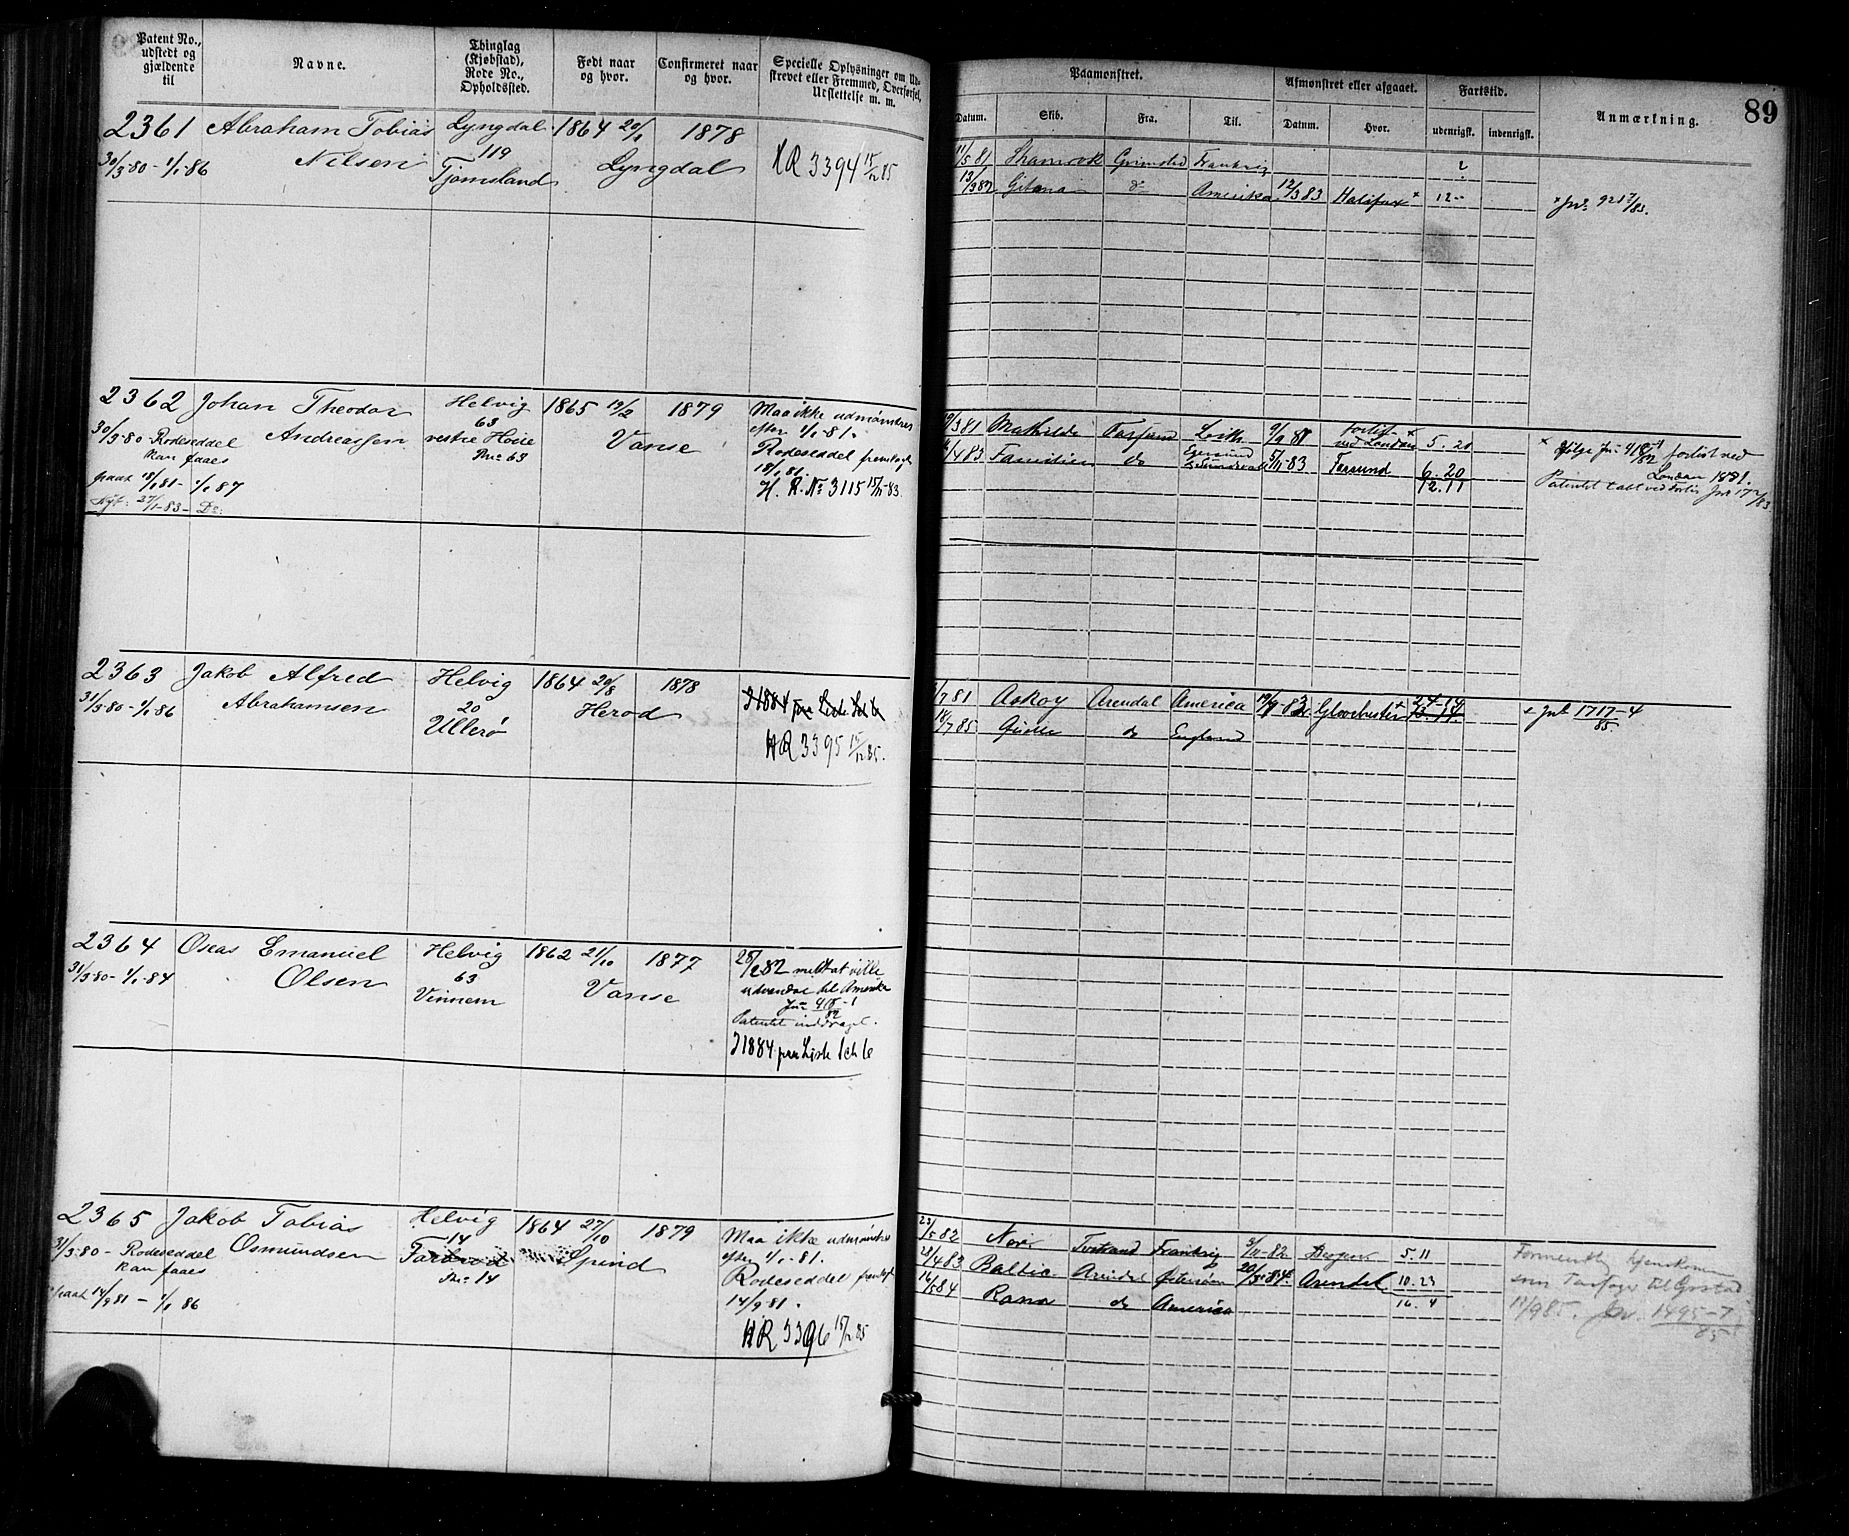 Patent No.,
udstedt og
gjældende
til
Navne.
Thinglag
(Kjøbstad),
Rode No.,
Opholdssted.
Født naar
og hvor.
Confirmeret naar
og hvor.
Specielle Oplysninger om Ud-
skrevet eller Fremmed, Overførsel,
Udslettelse m. m.
Paamønstret.
Afmønstret eller afgaaet.
Fartstid.
Anmærkning.
89
Datum.
Skib.
Fra.
Til.
Datum.
Hvor.
udenrigsk.
indenrigsk.
2361 Abraham Tobias Lyngdal 1864 20/1 1878
30/3-80 - 1/1-86 Nilsen 119 Lyngdal HR 3394 15/12 85
Tjomsland
11/5 81 Shamrok Grimstad Frankrig
13/3 82 Gitana do Amerika 12/3 83 Halifax x 12 -
x Jno 921 7/83.
2362 Johan Theodor Helvig 1865 19/2 1879 Maa ikke udmønstres
30/3-80 Rodeseddel Andreassen 63 Vanse efter 1/1-81.
kan faaes vestre Høie Rodeseddel fremlagt
paat 18/1 81 - 1/1 87 Bno 63 18/1 81.
27/1-83 - Do: H. R. No 3115 15/11-83.
Mathilde Farsund Leith 9/9 81 forlist x
ved London 5. 20
4 83 Familien do Egersund
Sundsvall 5/11-83 Farsund 6. 20
12. 11
x ifølge Jno 418-1/82 forlist ved
London 1881.
Patentet tabt ved Forlis Jno 17
2363 Jakob Alfred Helvig 1864 20/8 1878
31/3-80 - 1/1-86 Abrahamsen 20 Herod
Ullerø HR 3395 15/12 85.
7 81 Askoy Arendal America Glochester
18/7 85 do England
+ Jno 1717-4/85.
2364 Oscar Emanuel Helvig 1862 21/10 1877 28/2 82 meldt at ville
31/3-80 - 1/1-84 Olsen 63 Vanse udvandre til Amerika
Vinnem Jno 418-1/82
Patentet inddraget.
J 1884 paa Liste 1ch 6
2365 Jakob Tobias Helvig 1864 27/10 1879 Maa ikke udmønstres
31/3-80 - Rodeseddel Osmundsen 14 Spind efter 1/1-81.
kan faaes Bno 14 Rodeseddel fremlagt
paat 14/9 81 - 1/1 86 14/9 81.
HR 3396 15/12 85
23/5 82 Nor Frankrig 3/11-82 5. 11
28/4 83 Baltic Arendal Arendal 10. 23
16/5 84 Rana do America 16. 4
Formentlig hjemkommen
som Passager til
11/9 85. Jno. 1495-7/85